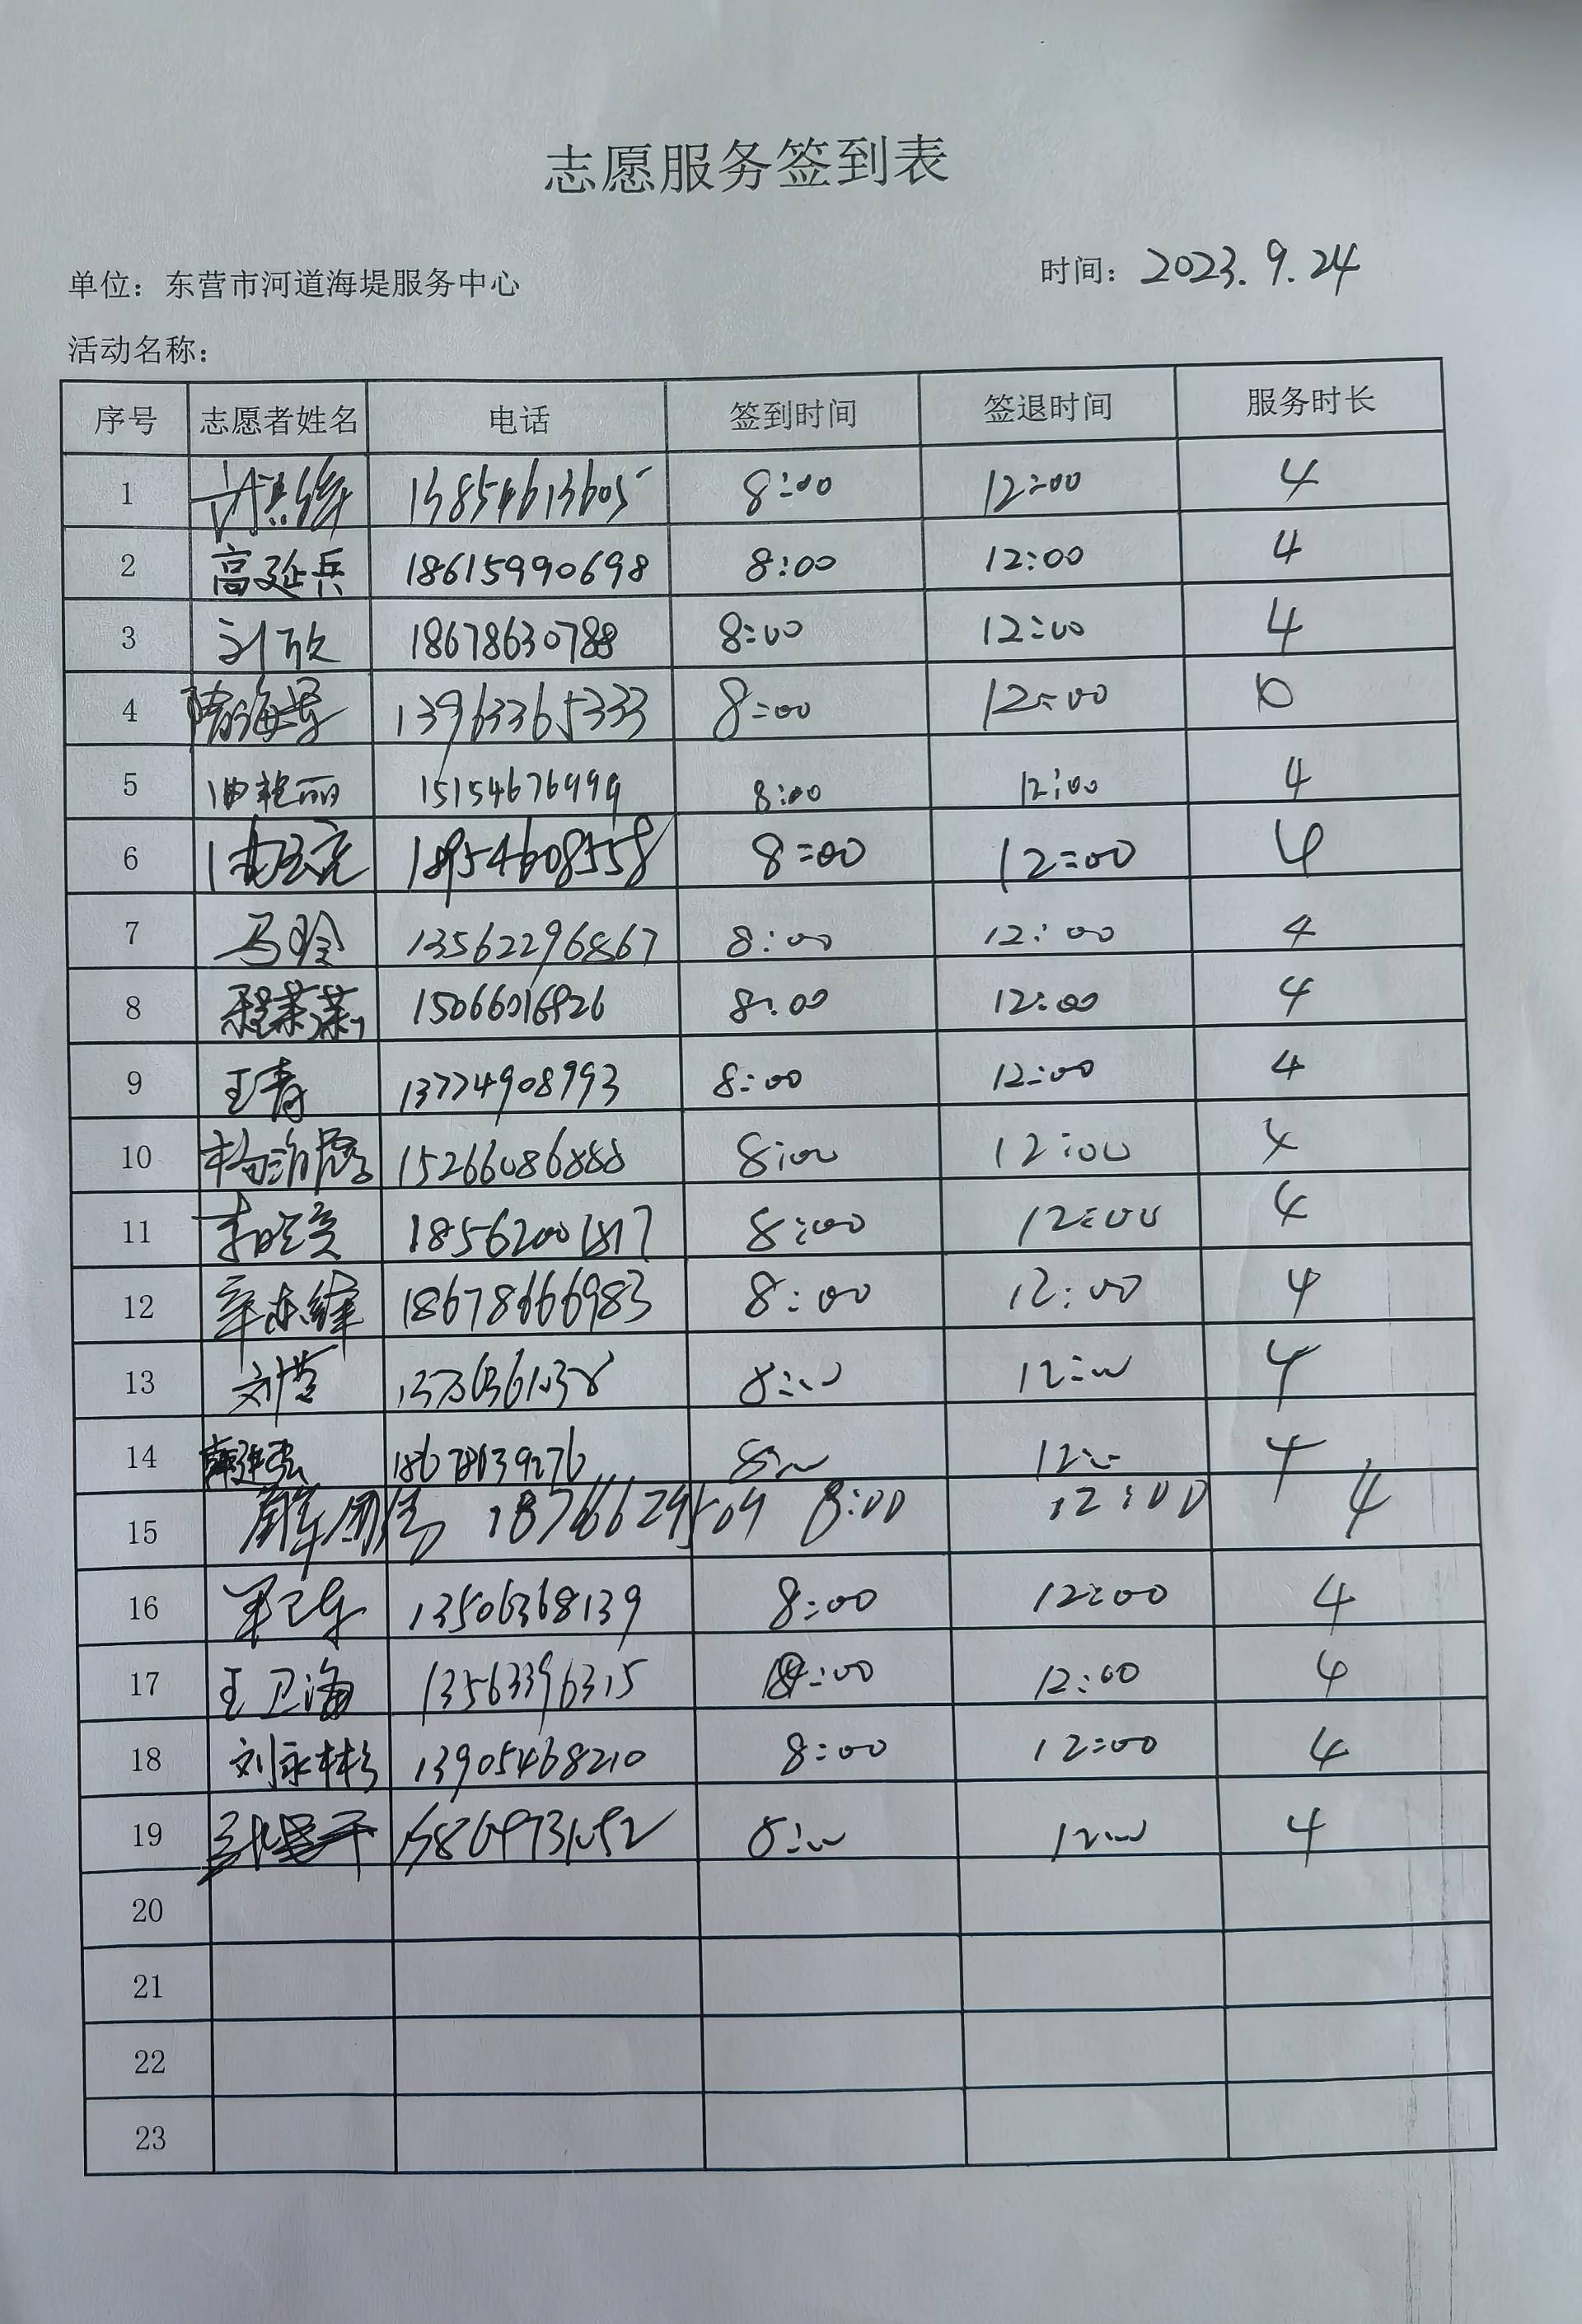 志愿服务签到表
单位：东营市河道海堤服务中心 时间：2023.9.24
活动名称：
序号 志愿者姓名 电话 签到时间 签退时间 服务时长
1 13854613605 8:00 12:00 4
2 高延兵 18615990698 8:00 12:00 4
3 刘欣 18678630788 8:00 12:00 4
4 13963365333 8:00 12:00
5 曲艳丽 15154676999 8:00 12:00 4
6 18954608558 8:00 12:00 4
7 马玲 13562296867 8:00 12:00 4
8 程荣荣 8:00 12:00 4
9 王青 13774908993 8:00 12:00 4
10 15266086888 8:00 12:00 4
11 李晓亮 18562001817 8:00 12:00 4
12 辛东绪 18678666983 8:00 12:00 4
13 刘营 8:00 12:00 4
14 18678639276 8:00 12:00 4
15 18766629509 8:00 12:00 4
16 13506368139 8:00 12:00 4
17 王卫海 13563396315 8:00 12:00 4
18 刘永彬 13905468210 8:00 12:00 4
19 8:00 12:00 4
20
21
22
23